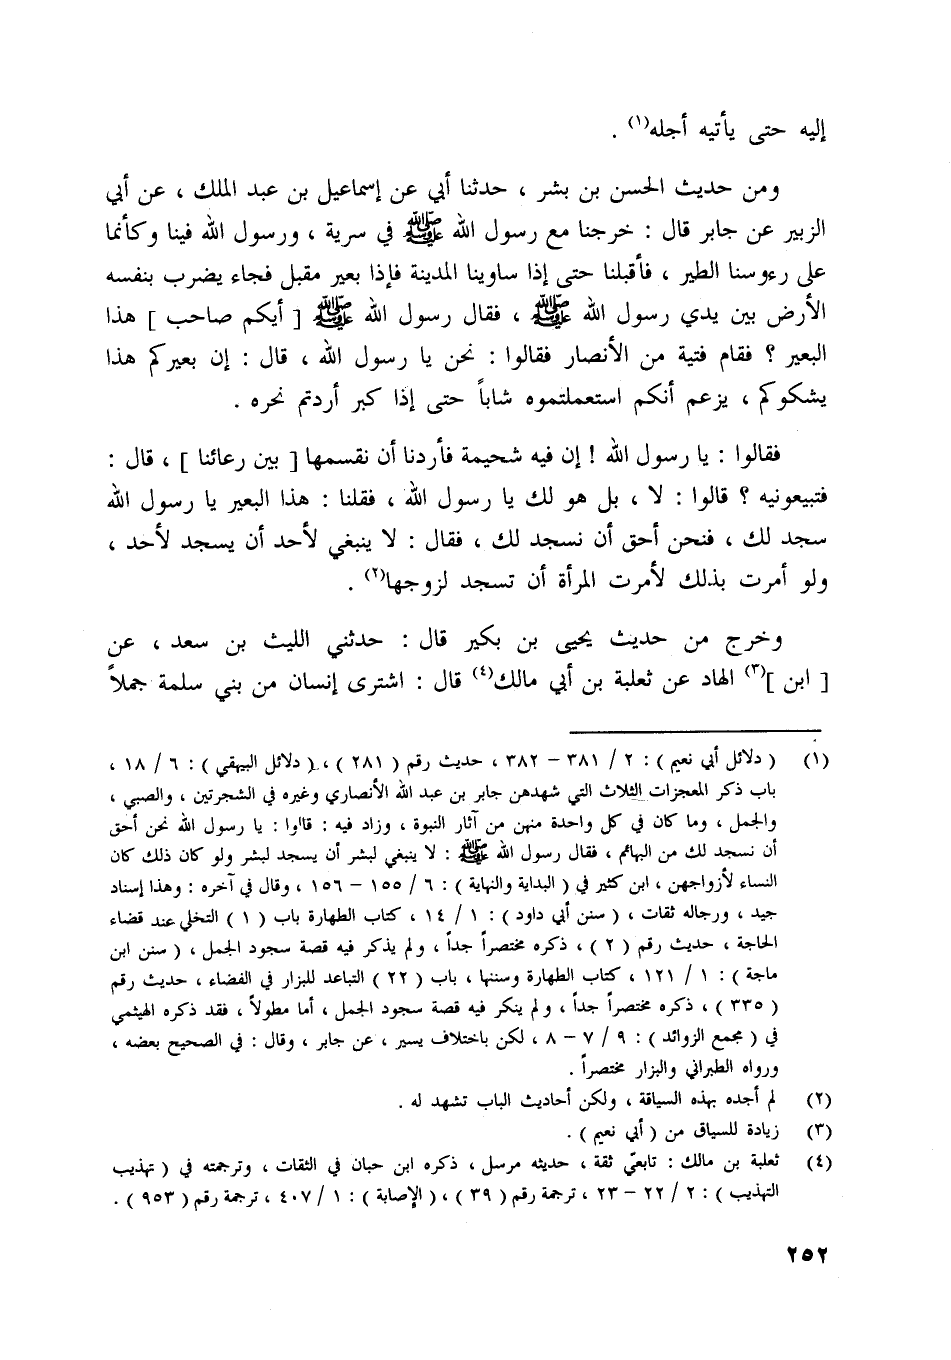 إليه حتى يأتيه أجله(١) .
ومن حديث الحسن بن بشر ، حدثنا أبي عن إسماعيل بن عبد الملك ، عن أبي
الزبير عن جابر قال : خرجنا مع رسول الله ﷺ في سرية ، ورسول الله فينا وكأنما
على رءوسنا الطير ، فأقبلنا حتى إذا ساوينا المدينة فإذا بعير مقبل فجاء يضرب بنفسه
الأرض بين يدي رسول الله ﷺ ، فقال رسول الله ﷺ [ أيكم صاحب ] هذا
البعير ؟ فقام فتية من الأنصار فقالوا : نحن يا رسول الله ، قال : إن بعيركم هذا
يشكوكم ، يزعم أنكم استعملتموه شاباً حتى إذا كبر أردتم نحره .
فقالوا : يا رسول الله ! إن فيه شحيمة فأردنا أن نقسمها [ بين رعائنا ] ، قال :
فتبيعونيه ؟ قالوا : لا ، بل هو لك يا رسول الله ، فقلنا : هذا البعير يا رسول الله
سجد لك ، فنحن أحق أن نسجد لك ، فقال : لا ينبغي لأحد أن يسجد لأحد ،
ولو أمرت بذلك لأمرت المرأة أن تسجد لزوجها(٢) .
وخرج من حديث يحيى بن بكير قال : حدثني الليث بن سعد ، عن
[ ابن ](٣) الهاد عن ثعلبة بن أبي مالك(٤) قال : اشترى إنسان من بني سلمة جملاً
(١) ( دلائل أبي نعيم ) : ٢ / ٣٨١ – ٣٨٢ ، حديث رقم ( ٢٨١ ) ، ( دلائل البيهقي ) : ٦ / ١٨ ،
باب ذكر المعجزات الثلاث التي شهدهن جابر بن عبد الله الأنصاري وغيره في الشجرتين ، والصبي ،
والجمل ، وما كان في كل واحدة منهن من آثار النبوة ، وزاد فيه : قااوا : يا رسول الله نحن أحق
أن نسجد لك من البهائم ، فقال رسول الله ﷺ : لا ينبغي لبشر أن يسجد لبشر ولو كان ذلك كان
النساء لأزواجهن ، ابن كثير في ( البداية والنهاية ) : ٦ / ١٥٥ – ١٥٦ ، وقال في آخره : وهذا إسناد
جيد ، ورجاله ثقات ، ( سنن أبي داود ) : ١ / ١٤ ، كتاب الطهارة باب ( ١ ) التخلي عند قضاء
الحاجة ، حديث رقم ( ٢ ) ، ذكره مختصراً جداً ، ولم يذكر فيه قصة سجود الجمل ، ( سنن ابن
ماجة ) : ١ / ١٢١ ، كتاب الطهارة وسننها ، باب ( ٢٢ ) التباعد للبزار في الفضاء ، حديث رقم
( ٣٣٥ ) ، ذكره مختصراً جداً ، ولم ينكر فيه قصة سجود الجمل ، أما مطولاً ، فقد ذكره الهيثمي
في ( مجمع الزوائد ) : ٩ / ٧ – ٨ ، لكن باختلاف يسير ، عن جابر ، وقال : في الصحيح بعضه ،
ورواه الطبراني والبزار مختصراً .
(٢) لم أجده بهذه السياقة ، ولكن أحاديث الباب تشهد له .
(٣) زيادة للسياق من ( أبي نعيم ) .
(٤) ثعلبة بن مالك : تابعيّ ثقة ، حديثه مرسل ، ذكره ابن حبان في الثقات ، وترجمته في ( تهذيب
التهذيب ) : ٢ / ٢٢ – ٢٣ ، ترجمة رقم ( ٣٩ ) ، ( الإصابة ) : ١ / ٤٠٧ ، ترجمة رقم ( ٩٥٣ ) .
٢٥٢